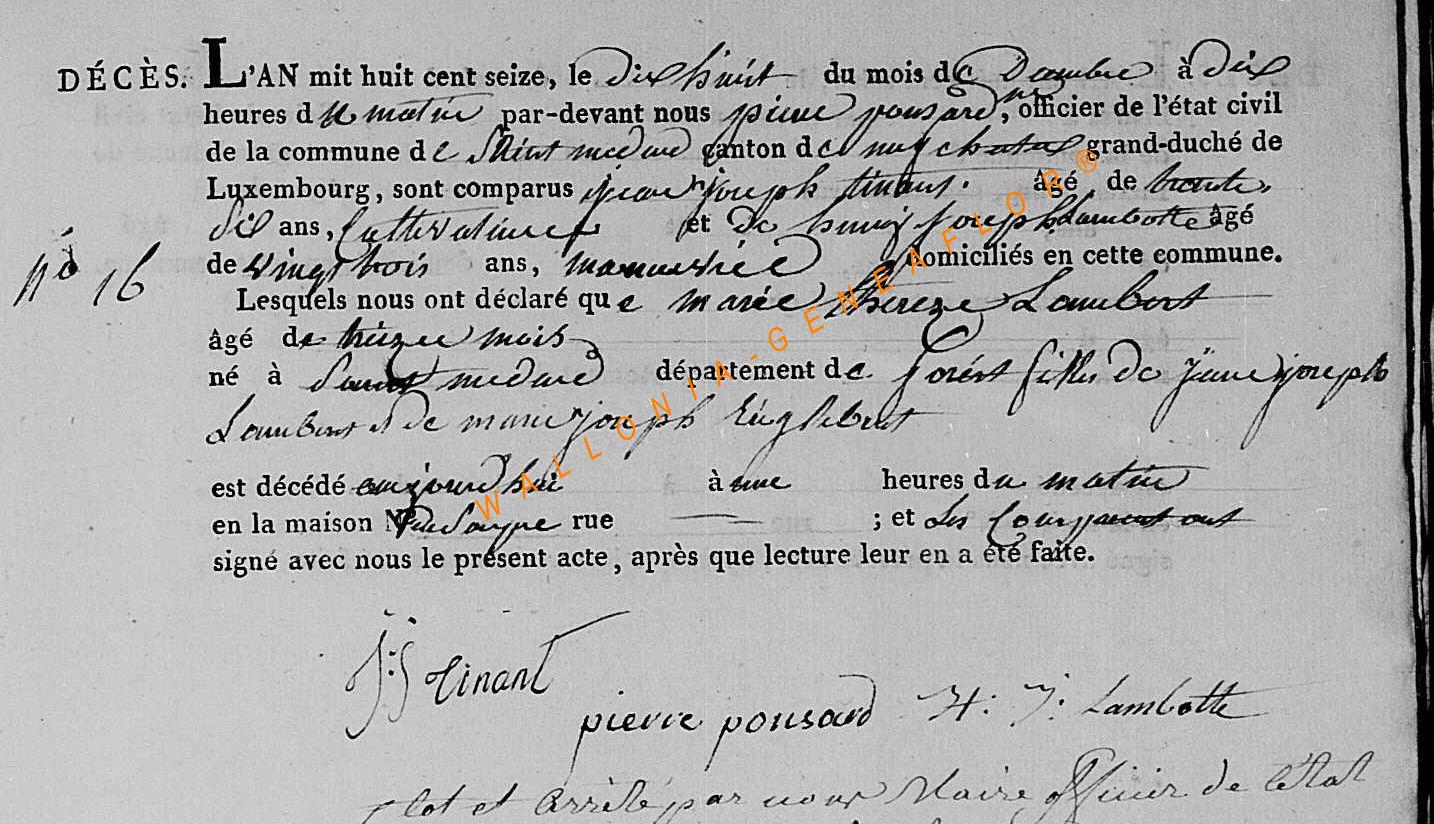 DÉCÈS. L'AN mit huit cent seize, le dix huit du mois de Decembre à dix
heures du matin par-devant nous pierre ponsard, officier de l'état civil
de la commune de Saint medard canton de neufchateau grand-duché de
Luxembourg, sont comparus jean joseph tinant. âgé de trente
dix ans, Cultivateur et de henry Joseph Lambotte âgé
n° 16
de vingt trois ans, domiciliés en cette commune.
Lesquels nous ont déclaré que marie thereze Lambert
âgé de treize mois
né à Saint medard département de forêt fille de joseph
Lambert et de marie joseph Englebert
est décédé aujourd'hui à une heures du matin
en la maison N° rue ; et Les Comparant ont
signé avec nous le présent acte, après que lecture leur en a été faite.
WALLONIA-GENEAFLOR®
J: J tinant
pierre ponsard H: J: Lambotte
Clot et arrêté par nous Maire officier de l'état